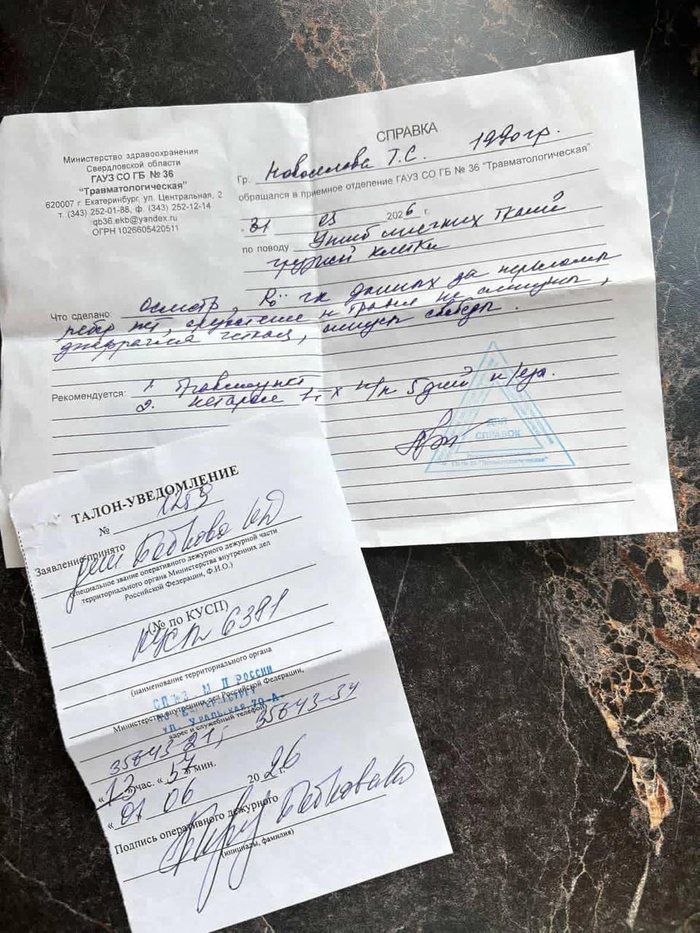 Министерство здравоохранения
Свердловской области
ГАУЗ СО ГБ № 36
"Травматологическая"
620007 г. Екатеринбург, ул. Центральная, 2
т. (343) 252-01-88, ф. (343) 252-12-14
gb36.ekb@yandex.ru
ОГРН 1026605420511
СПРАВКА
Гр. Новоселова Т.С. 1990 гр.
обращался в приемное отделение ГАУЗ СО ГБ № 36 "Травматологическая"
" 31 05 2026 г.
по поводу Ушиб мягких тканей
грудной клетки
Что сделано: Осмотр, данных за переломы
ребер нет,
диафрагмы
Рекомендуется: 1. Травмпункт
2. 5 дней
ДЛЯ
СПРАВОК
ТАЛОН-УВЕДОМЛЕНИЕ
№ 1259
Заявление принято
(специальное звание оперативного дежурного дежурной части
территориального органа Министерства внутренних дел
Российской Федерации, Ф.И.О.)
(№ по КУСП)
КУСП 6391
(наименование территориального органа
Министерства внутренних дел Российской Федерации,
адрес и служебный телефон)
35643-21, 35643-34
" 13 час. « 57 мин.
« 01 06 20 26 г.
Подпись оперативного дежурного
(инициалы, фамилия)